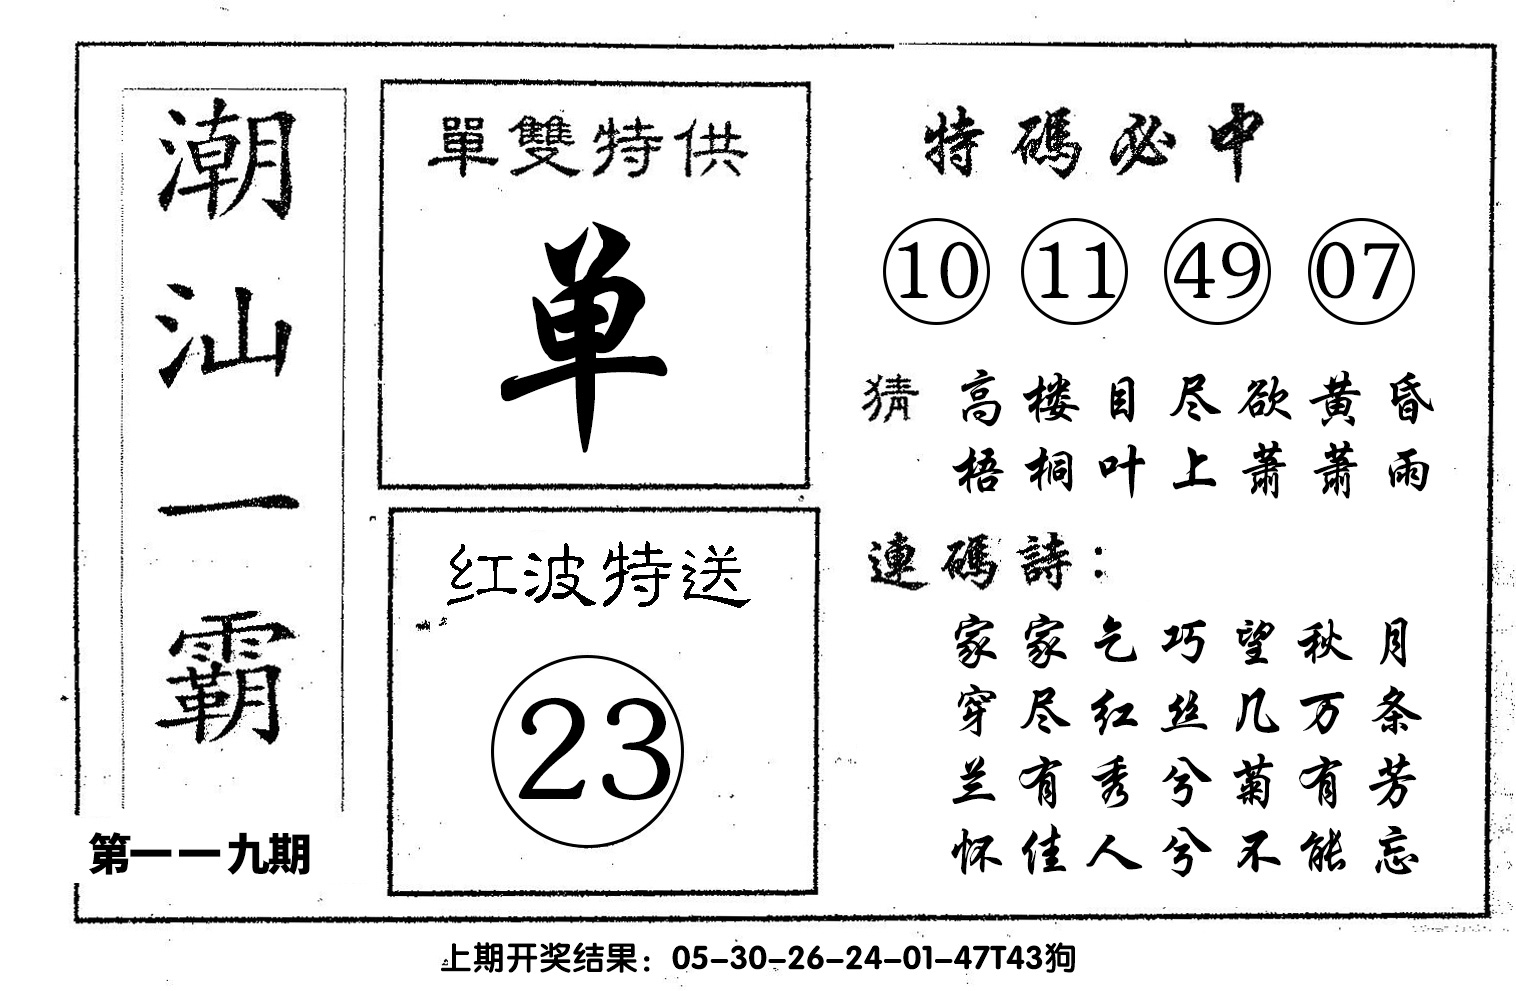 潮汕一霸
第一一九期
單雙特供
单
红波特送
23
特碼必中
10 11 49 07
猜 高楼目尽欲黄昏
梧桐叶上萧萧雨
連碼詩：
家家乞巧望秋月
穿尽红丝几万条
兰有秀兮菊有芳
怀佳人兮不能忘
上期开奖结果：05-30-26-24-01-47T43狗